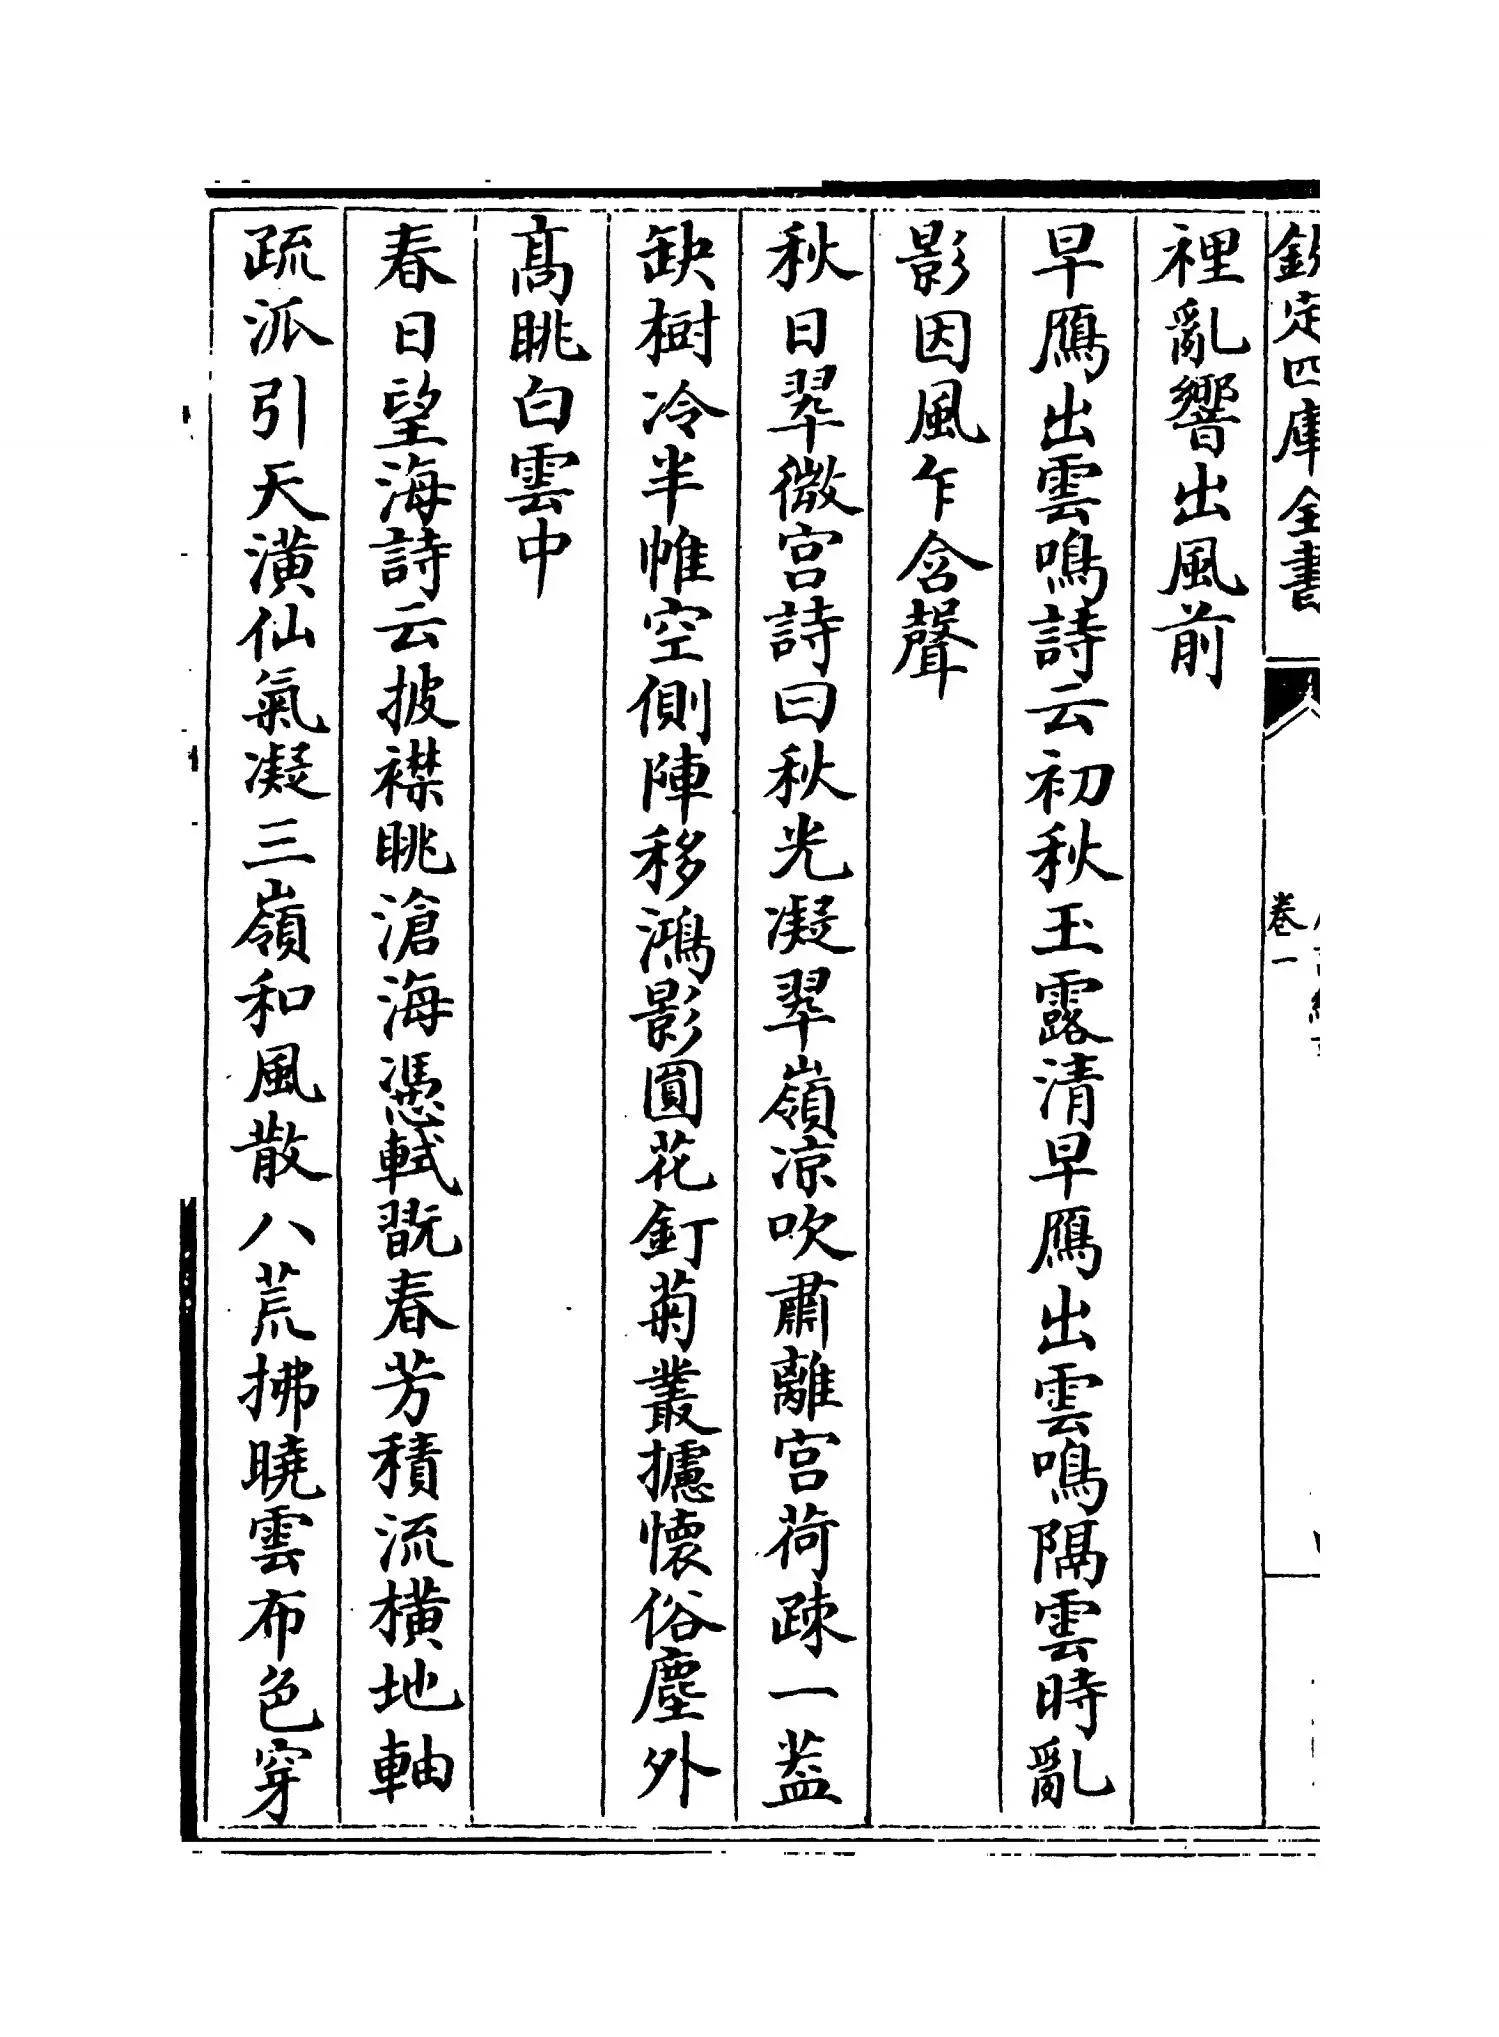 欽定四庫全書
卷一
裡亂響出風前
早鴈出雲鳴詩云初秋玉露清早鴈出雲鳴隔雲時亂
影因風乍含聲
秋日翠微宮詩曰秋光凝翠嶺凉吹肅離宮荷疎一葢
缺樹冷半帷空側陣移鴻影圓花釘菊叢攄懷俗塵外
髙眺白雲中
春日望海詩云披襟眺滄海憑軾翫春芳積流橫地軸
疏派引天潢仙氣凝三嶺和風散八荒拂曉雲布色穿